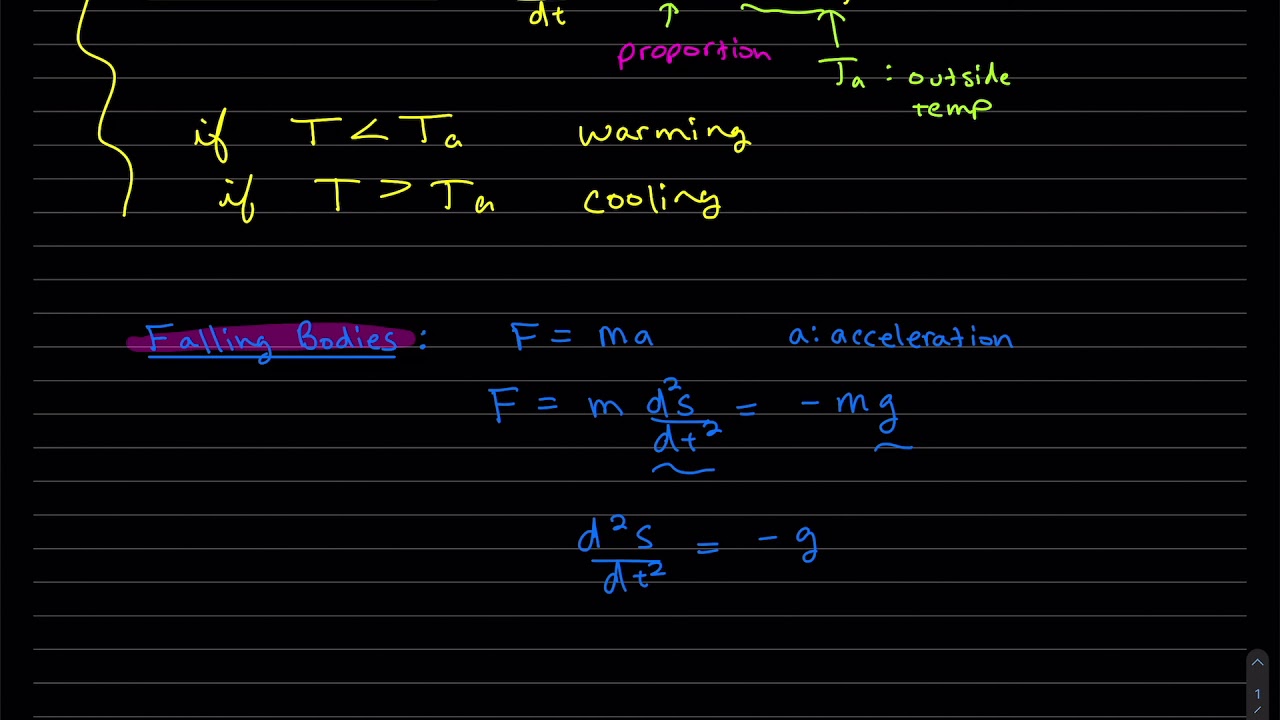 dt
proportion
Ta : outside
temp
if T < Ta warming
if T > Ta cooling
Falling Bodies : F = ma a: acceleration
F = m d²s/dt² = - mg
d²s/dt² = - g
1